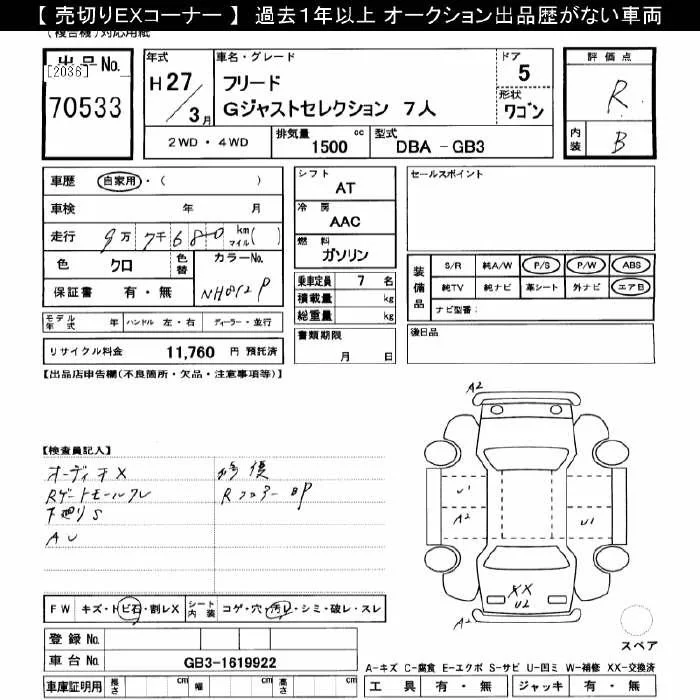 【 売切りEXコーナー 】 過去1年以上 オークション出品歴がない車両
(複合機)対応用紙
出品No.
[2036]
70533
年式
H27/3月
車名・グレード
フリード
Gジャストセレクション 7人
ドア
5
形状
ワゴン
評価点
R
内装
B
2WD・4WD
排気量
1500 cc
型式
DBA - GB3
車歴 自家用・( )
車検 年 月
走行 9万7千680 km マイル( )
色 クロ 色替 カラーNo. NH812P
保証書 有・無
モデル年式 年 ハンドル 左・右 ディーラー・並行
リサイクル料金 11,760 円 預託済
シフト
AT
冷房
AAC
燃料
ガソリン
乗車定員 7 名
積載量 kg
総重量 kg
書類期限
月 日
セールスポイント
装備品
S/R 純A/W P/S P/W ABS
純TV 純ナビ 革シート 外ナビ エアB
ナビ型番:
後日品
【出品店申告欄(不良箇所・欠品・注意事項等)】
【検査員記入】
オーディオX
Rゲートモールワレ
下廻りS
AU
修復
Rフロアー BP
A2
U1
A2
U1
XX
U2
A2
スペア
FW キズ・トビ石・割レX シート内装 コゲ・穴・汚レ・シミ・破レ・スレ
登録No.
車台No. GB3-1619922
車庫証明用 長さ cm 幅 cm 高さ cm
A-キズ C-腐食 E-エクボ S-サビ U-凹ミ W-補修 XX-交換済
工具 有・無 ジャッキ 有・無